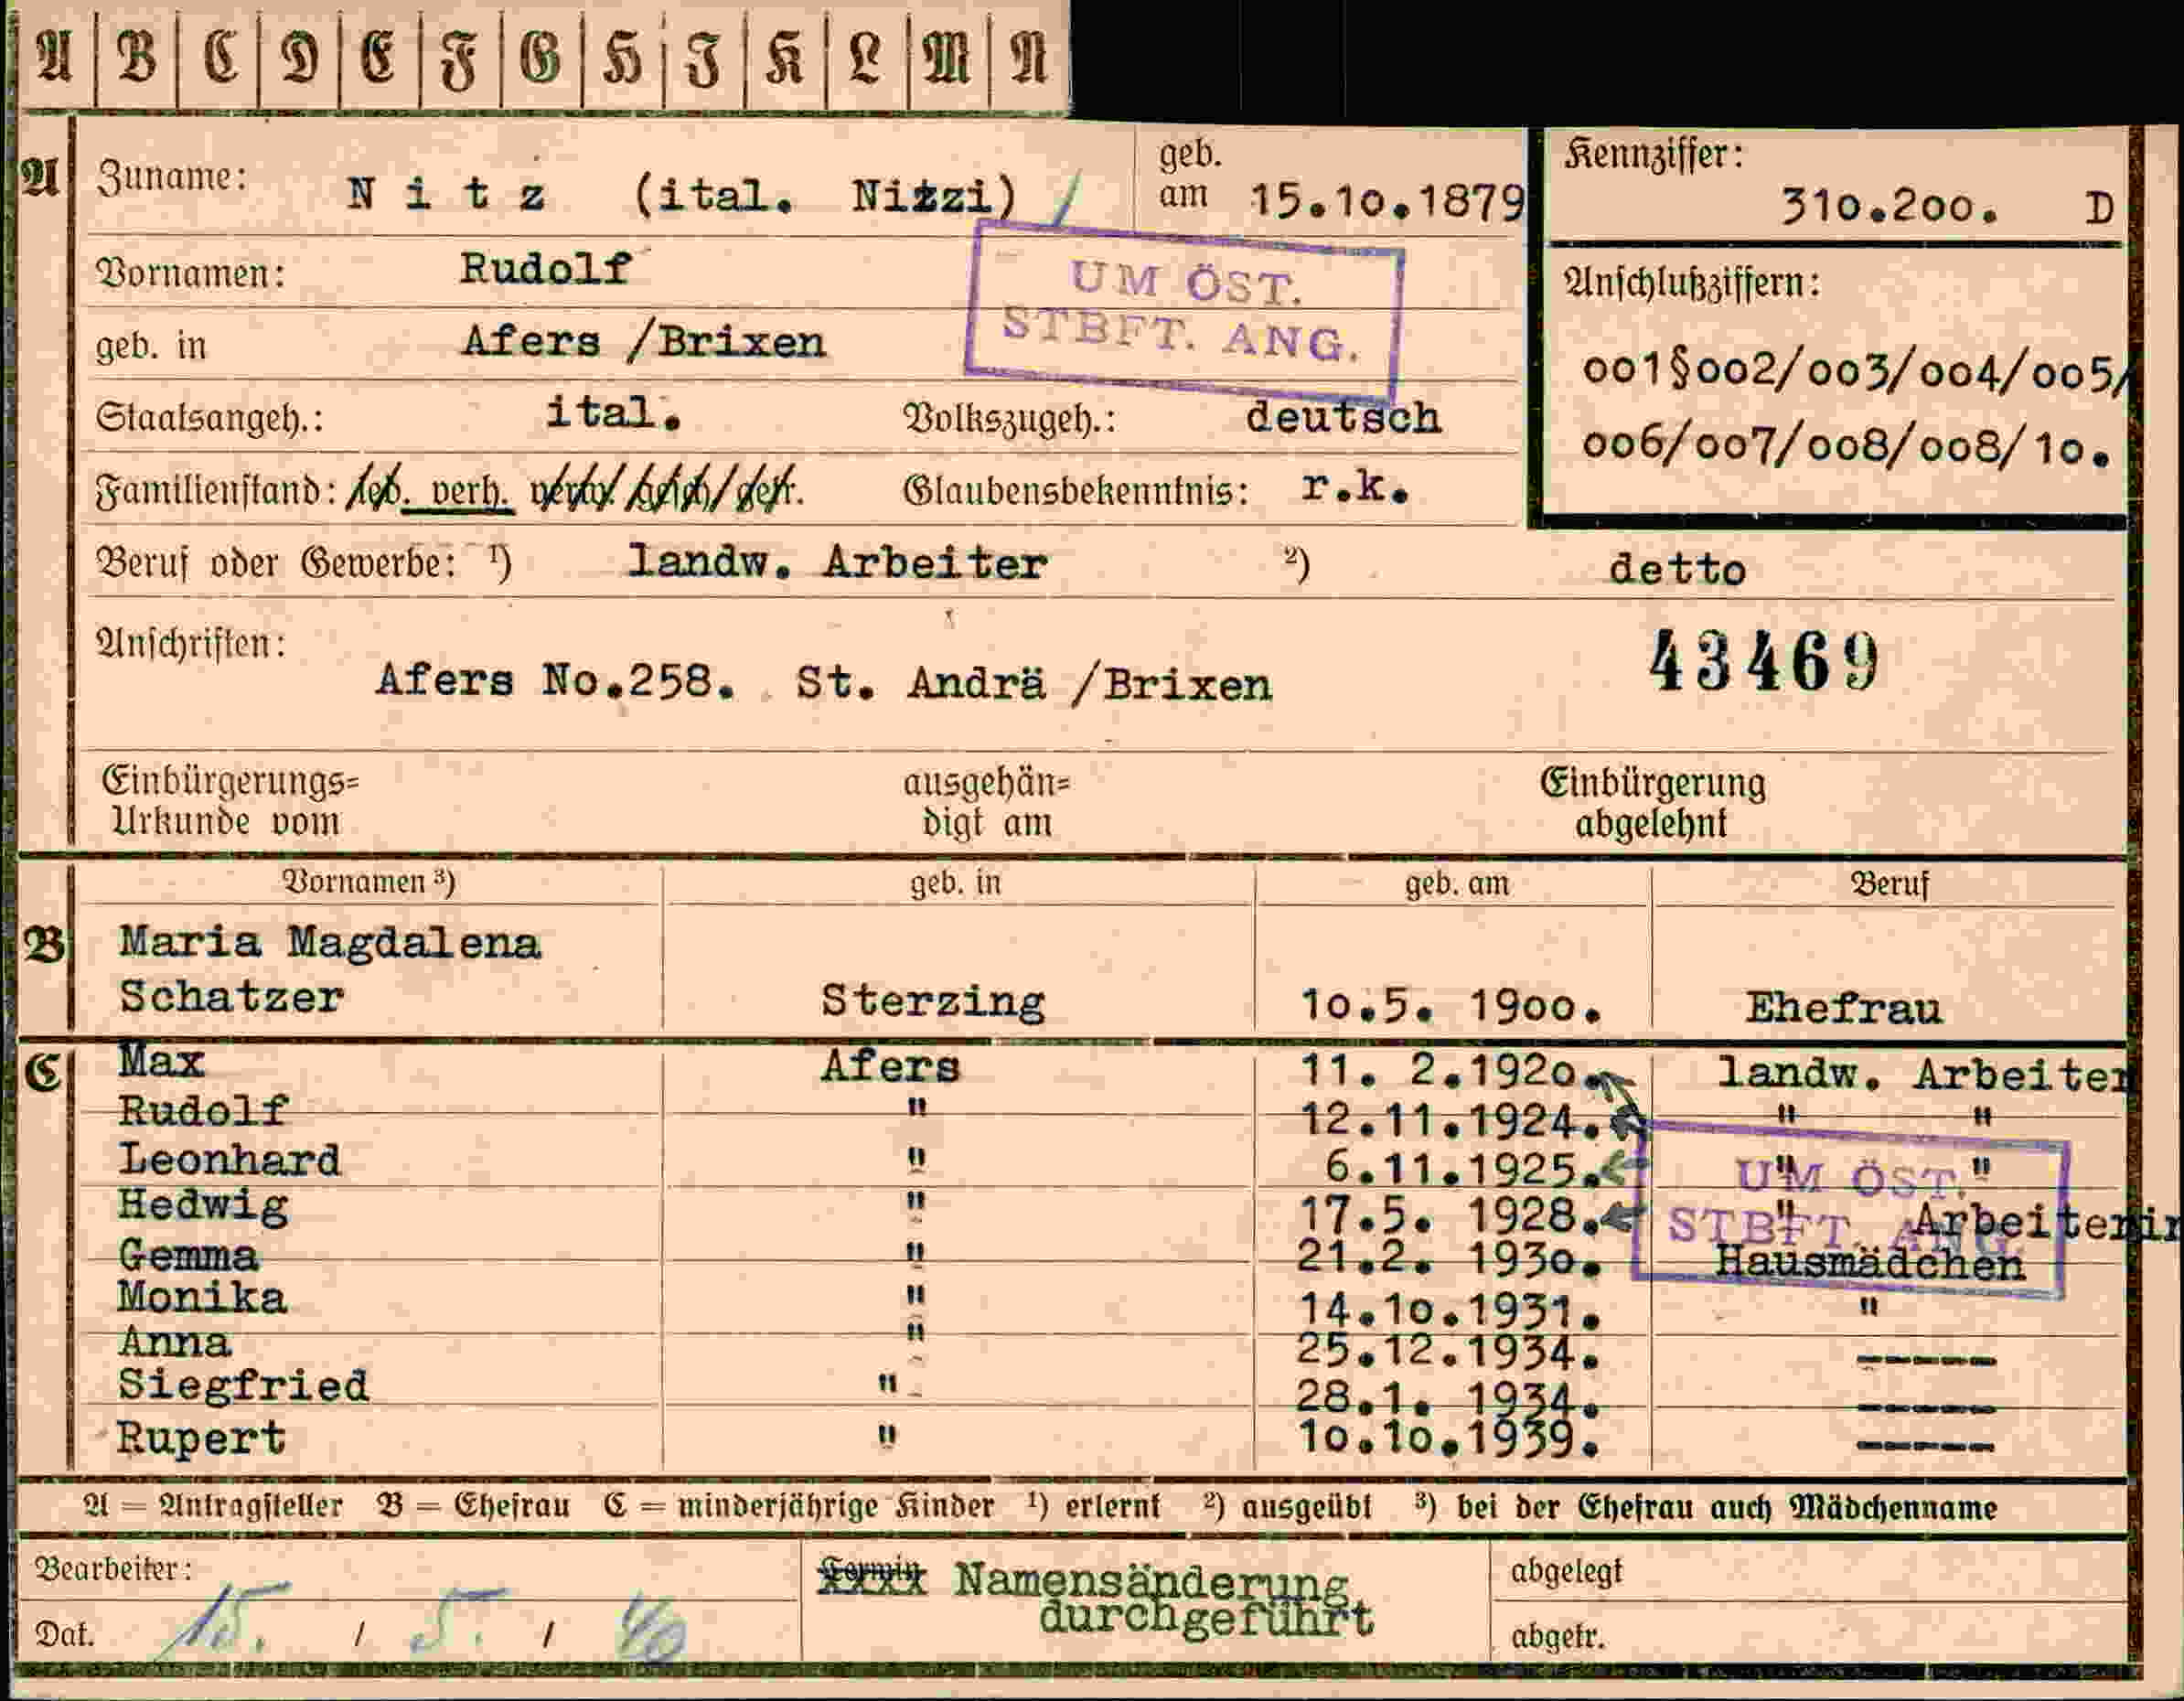 A B C D E F G H I K L M N
A Zuname: Nitz (ital. Nizzi) geb. am 15.10.1879 Kennziffer: 310.200. D
Vornamen: Rudolf
UM ÖST.
STBFT. ANG.
Anschlußziffern:
geb. in Afers /Brixen
001§002/003/004/005/
Staatsangeh.: ital. Volkszugeh.: deutsch
006/007/008/008/10.
Familienstand: led. verh. verw. gesch. getr. Glaubensbekenntnis: r.k.
Beruf oder Gewerbe: ¹) landw. Arbeiter ²) detto
Anschriften: Afers No.258. St. Andrä /Brixen
43469
Einbürgerungs=
Urkunde vom
ausgehän=
digt am
Einbürgerung
abgelehnt
Vornamen ³) geb. in geb. am Beruf
B Maria Magdalena
Schatzer Sterzing 10.5. 1900. Ehefrau
C Max Afers 11. 2.1920. landw. Arbeiter
Rudolf " 12.11.1924. " "
Leonhard " 6.11.1925. " "
UM ÖST.
Hedwig " 17.5. 1928. " Arbeiterin
STBFT. ANG.
Gemma " 21.2. 1930. Hausmädchen
Monika " 14.10.1931. "
Anna " 25.12.1934. -----
Siegfried " 28.1. 1934. -----
Rupert " 10.10.1939. -----
A = Antragsteller B = Ehefrau C = minderjährige Kinder ¹) erlernt ²) ausgeübt ³) bei der Ehefrau auch Mädchenname
Bearbeiter: Termin Namensänderung abgelegt
durchgeführt
Dat. 15. / 5. / 40 abgetr.